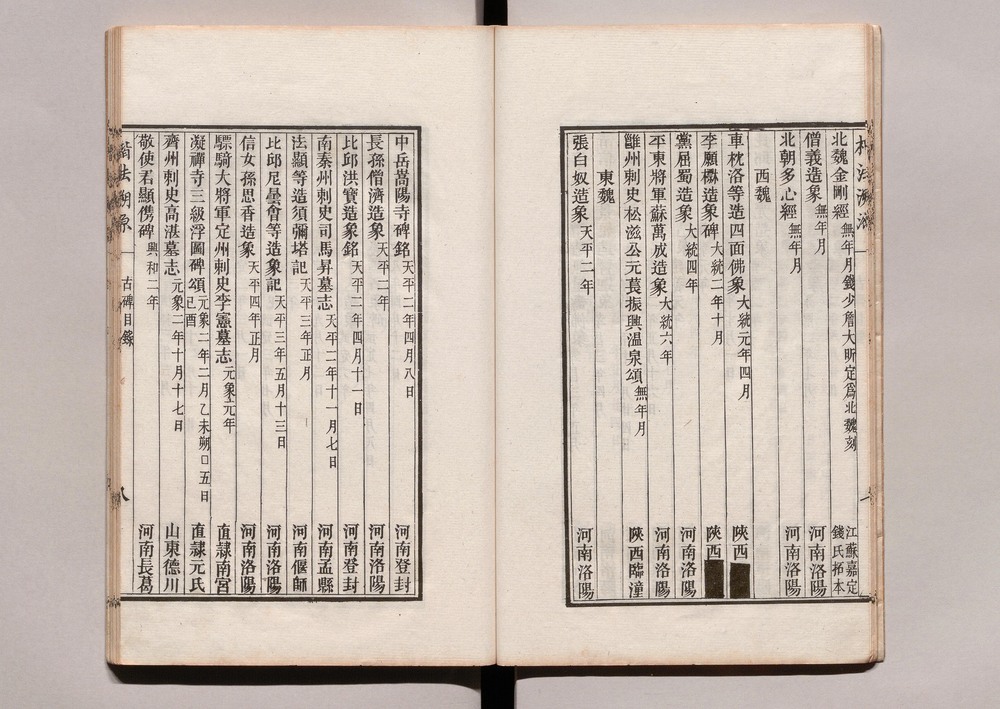 北魏金剛經 無年月錢少詹大昕定爲北魏刻 江蘇嘉定錢氏拓本
僧義造象 無年月 河南洛陽
北朝多心經 無年月 河南洛陽
西魏
車枕洛等造四面佛象 大統元年四月 陝西
李願櫟造象碑 大統二年十月 陝西
黨屈蜀造象 大統四年 河南洛陽
平東將軍蘇萬成造象 大統六年 河南洛陽
雝州刺史松滋公元萇振興溫泉頌 無年月 陝西臨潼
東魏
張白奴造象 天平二年 河南洛陽
中岳嵩陽寺碑銘 天平二年四月八日 河南登封
長孫僧濟造象 天平二年 河南洛陽
比邱洪寶造象銘 天平二年四月十一日 河南登封
南秦州刺史司馬昇墓志 天平二年十一月七日 河南孟縣
法顯等造須彌塔記 天平三年正月 河南偃師
比邱尼曇會等造象記 天平三年五月十三日 河南洛陽
信女孫思香造象 天平四年正月 河南洛陽
驃騎大將軍定州刺史李憲墓志 元象元年 直隷南宮
凝禪寺三級浮圖碑頌 元象二年二月乙未朔□五日己酉 直隷元氏
齊州刺史高湛墓志 元象二年十月十七日 山東德川
敬使君顯儁碑 興和二年 河南長葛
楷法溯原 古碑目錄 八